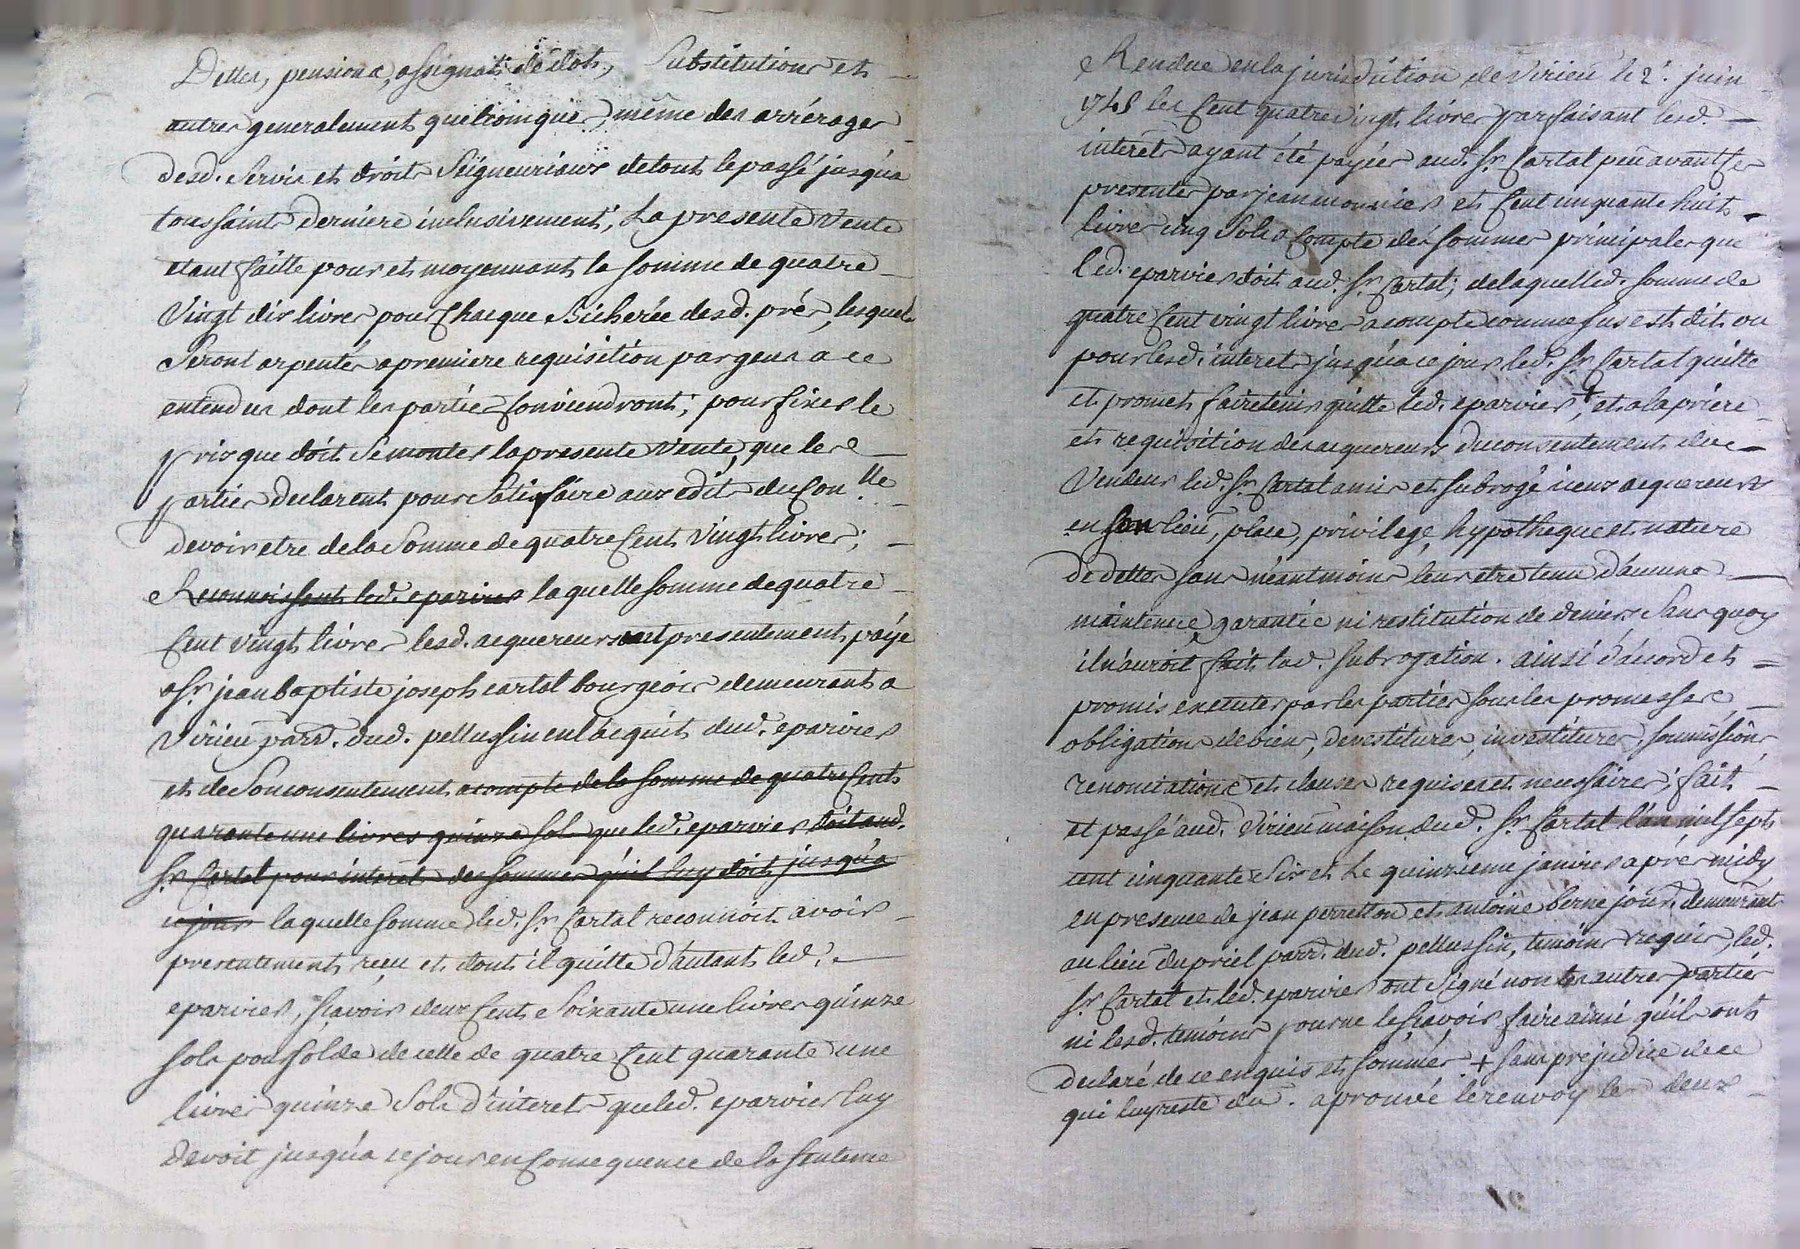 Dettes, pensions, assignats de dots, Substitutions et
autres generalement quelconques, même des arrérages
desd. Servis et droits Seigneuriaux de tout le passé jusqu'a
toussaints derniere inclusivement, La presente Vente
etant faitte pour et moyennant la somme de quatre
Vingt dix livres pour Chaque Bicherée desd. prés, lesquels
Seront arpentés a premiere requisition par gens a ce
entendus dont les parties Conviendront; pour fixer le
prix que doit Se monter la presente Vente, que les
parties declarent pour Satisfaire aux edits du Con.lle
devoir etre de la Somme de quatre Cent Vingt livres;
Reconnoissent led. eparvier laquelle somme de quatre
Cent Vingt livres lesd. acquereurs ont presentement payé
a Sr. jean baptiste joseph cartal bourgeois demeurant a
Virieu parr. dud. pellussin en l'acquit dud. eparvier
et de Son consentement acompte de la Somme de quatre Cents
quarante une livres quinze sols que led. eparvier doit aud.
Sr. Cartal pour interet des sommes qu'il luy doit jusqu'a
ce jour laquelle somme led. Sr. Cartal reconnoit avoir
presentement reçu et dont il quitte d'autant led.
eparvier, Sçavoir deux Cent Soixante une livres quinze
sols pour solde de celle de quatre Cent quarante une
livres quinze Sols d'interets que led. eparvier luy
devoit jusqu'a ce jour en Consequence de la Sentence
Rendue en la jurisdiction de Virieu le 2e. juin
1748 les Cent quatre vingt livres parfaisant lesd.
interets ayant été payées aud. Sr. Cartal peu avant Ces
presentes par jean monnier et Cent cinquante huit
livres cinq Sols a Compte des sommes principales que
led. eparvier doit aud. Sr. Cartal; de laquelle d. somme de
quatre Cent vingt livres acompte comme sus est dit ou
pour lesd. interets jusqu'a ce jour led. Sr. Cartal quitte
et promet faire tenir quitte led. eparvier, + et a la priere
et requisition des acquereurs du consentement du
Vendeur led. Sr. Cartal a mis et subrogé iceux acquereurs
en son lieu, place, privilege, hypotheque et nature
de dettes sans néantmoins leur etre tenu d'aucune
maintenüe, garantie ni restitution de deniers Sans quoy
il n'auroit fait lad. subrogation. ainsi d'accord et
promis executer par les parties sous les promesses
obligations de biens, devestitures, investitures, soumissions,
renonciations et clauses requises et necessaires; fait
et passé aud. Virieu maison dud. Sr. Cartal l'an mil sept
cent cinquante Six et Le quinzieme janvier aprés midy
en presence de jean perretton et antoine berne jour. demeurant
au lieu du priel parr. dud. pellussin, temoins requis, led.
Sr. Cartal et led. eparvier ont Signé non les autres parties
ni lesd. temoins pour ne le Sçavoir faire ainsi qu'ils ont
declaré de ce enquis et sommés + sans prejudice de ce
qui luy reste du. aprouvé le renvoy les deux